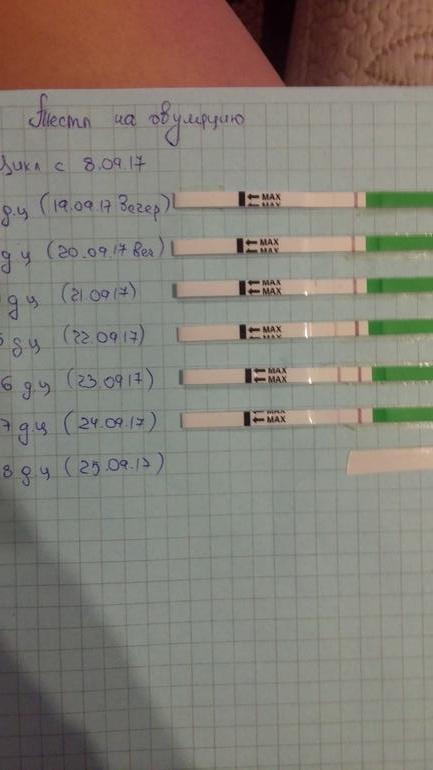 Тесты на овуляцию
Цикл с 8.09.17
д.ц (19.09.17 Вечер) MAX
MAX
д ц (20.09.17 Веч) MAX
MAX
д ц (21.09.17) MAX
MAX
5 д ц (22.09.17) MAX
MAX
6 д ц (23.09.17) MAX
MAX
7 д.ц (24.09.17) MAX
MAX
8 д ц (25.09.17)